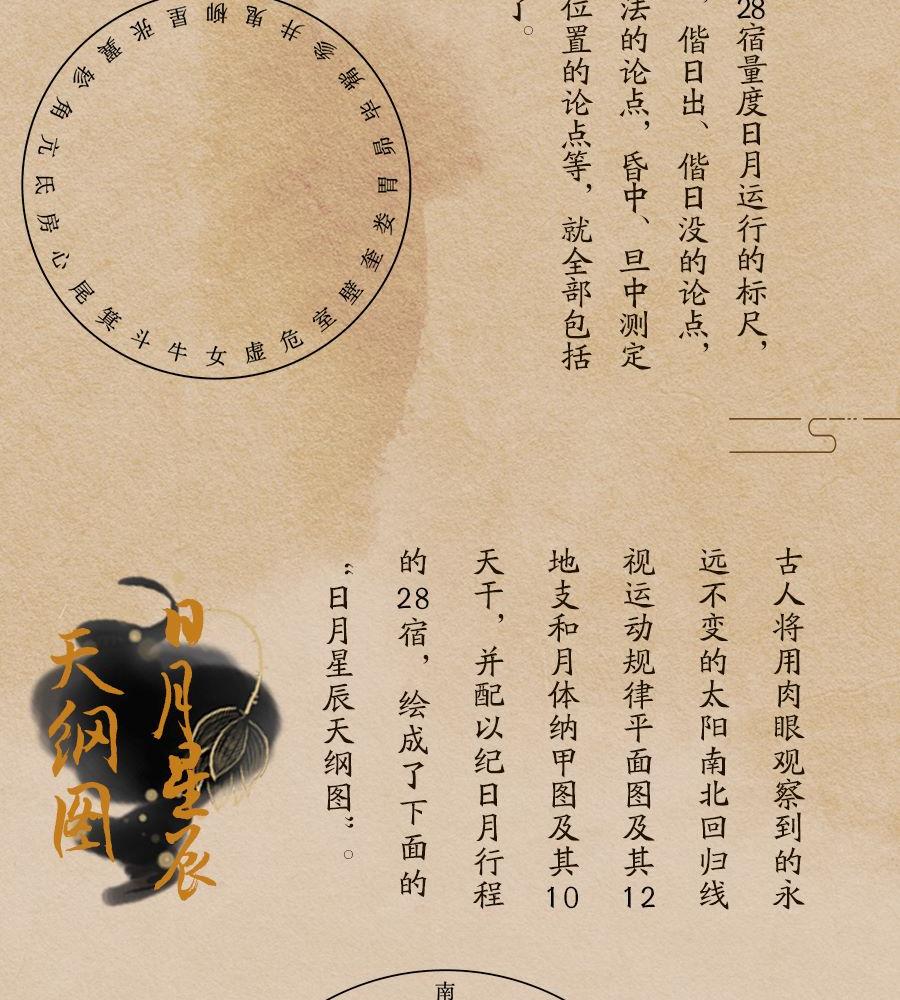 28宿量度日月运行的标尺，
，偕日出、偕日没的论点，
法的论点，昏中、旦中测定
位置的论点等，就全部包括
了。
角亢氐房心尾箕斗牛女虚危室壁奎娄胃昴毕觜参井鬼柳星张翼轸
古人将用肉眼观察到的永
远不变的太阳南北回归线
视运动规律平面图及其12
地支和月体纳甲图及其10
天干，并配以纪日月行程
的28宿，绘成了下面的
“日月星辰天纲图”。
日月星辰
天纲图
南